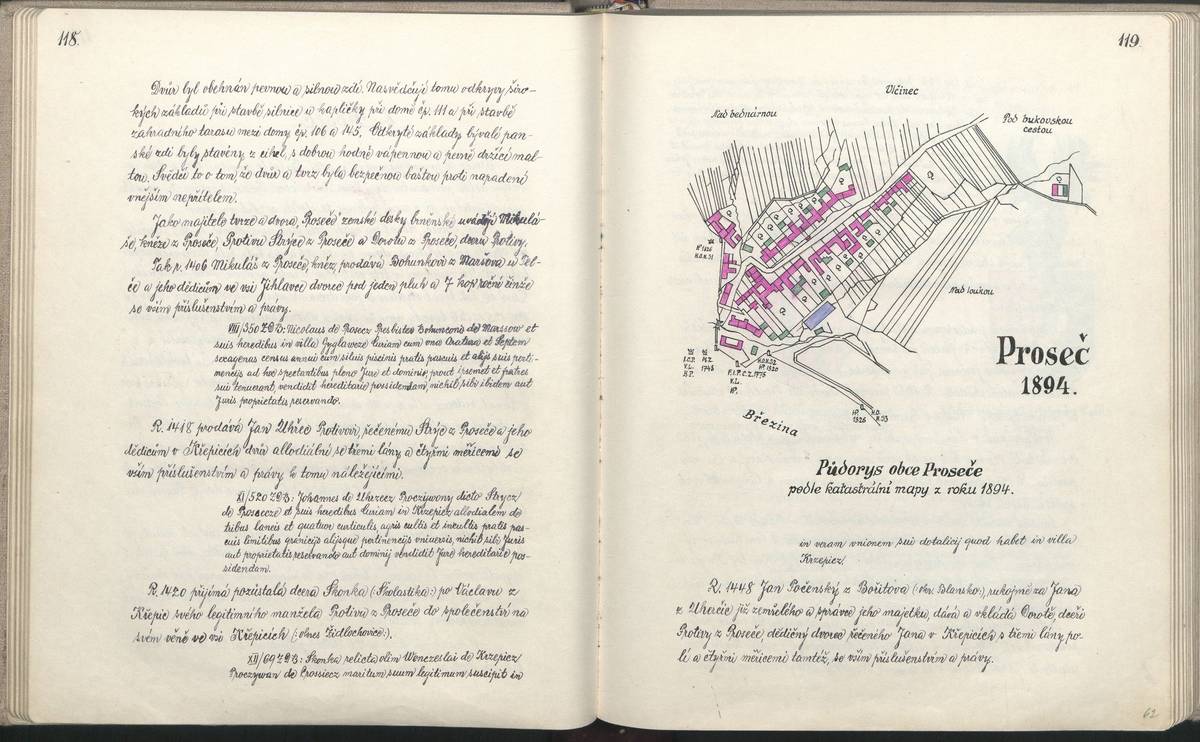 118.
Dvůr byl obehnán pevnou a silnou zdí. Nasvědčují tomu odkryvy širo-
kých základů při stavbě silnice u kapličky při domě čp. 111 a při stavbě
zahradního tarasu mezi domy čp. 106 a 145. Odkryté základy bývalé pan-
ské zdi byly stavěny z cihel, s dobrou hodně vápennou a pevně držící mal-
tou. Svědčí to o tom, že dvůr a tvrz byla bezpečnou baštou proti napadení
vnějším nepřítelem.
Jako majitele tvrze a dvora „Proseč“ zemské desky brněnské uvádějí Mikulá-
še, kněze z Proseče, Protivu Strýce z Proseče a Dorotu z Proseče, dceru Protivy.
Tak r. 1406 Mikuláš z Proseče, kněz, prodává Bohunkovi z Maršova u Tel-
če a jeho dědicům ve vsi Jihlavce dvorec pod jeden pluh a 7 kop roční činže
se vším příslušenstvím a právy.
VIII/350 Z.D.B.: Nicolaus de Prosecz Presbiter Bohunconi de Marssow et
suis heredibus in villa Gyglawecze Curiam cum una Aratura et Septem
sexagenas census annui cum siluis piscinis pratis pascuis et alijs suis perti-
mencijs ad hoc spectantibus pleno Jure et dominio, prout ipsemet et patres
sui tenuerant, vendidit hereditarie possidendam, nichil sibi ibidem aut
Juris proprietatis reservando.
R. 1418 prodává Jan Uhřec Protivovi, řečenému Strýc z Proseče a jeho
dědicům v Křepicích dvůr allodiální se třemi lány a čtyřmi měřicemi se
vším příslušenstvím a právy k tomu náležejícími.
XI/520 Z.D.B.: Johannes de Uhrzecz Proczywony dicto Strycz
de Prosecze et suis heredibus Curiam in Krzepicz allodialem de
tribus laneis et quatuor curticulis, agris cultis et incultis pratis pas-
cuis limitibus granicijs alijsque pertinencijs vniuersis, nichil sibi Juris
aut proprietatis reservando aut dominij vendidit Jure hereditario pos-
sidendam.
R. 1420 přijímá pozůstalá dcera Skonka (:Školastika:) po Václavu z
Křepic svého legitimního manžela Protivu z Proseče do společenství na
svém věně ve vsi Křepicích (:okres Židlochovice:).
XII/69 Z.D.B.: Skonka relicta olim Wenczeslai de Krzepicz
Proczywan de Prossiecz maritum suum legitimum suscipit in
119
Vlčinec
Nad bednárnou
Pod bukovskou
cestou
Nad loukou
Proseč
1894.
Březina
Půdorys obce Proseče
podle katastrální mapy z roku 1894.
in veram vnionem sui dotalicij quod habet in villa
Krzepicz.
R. 1448 Jan Počenský z Bořitova (:okr. Blansko:), rukojmě za Jana
z Uherčic již zemřelého a správce jeho majetku, dává a vkládá Dorotě, dceři
Protivy z Proseče, dědičný dvorec řečeného Jana v Křepicích s třemi lány po-
lí a čtyřmi měřicemi tamtéž, se vším příslušenstvím a právy.
62